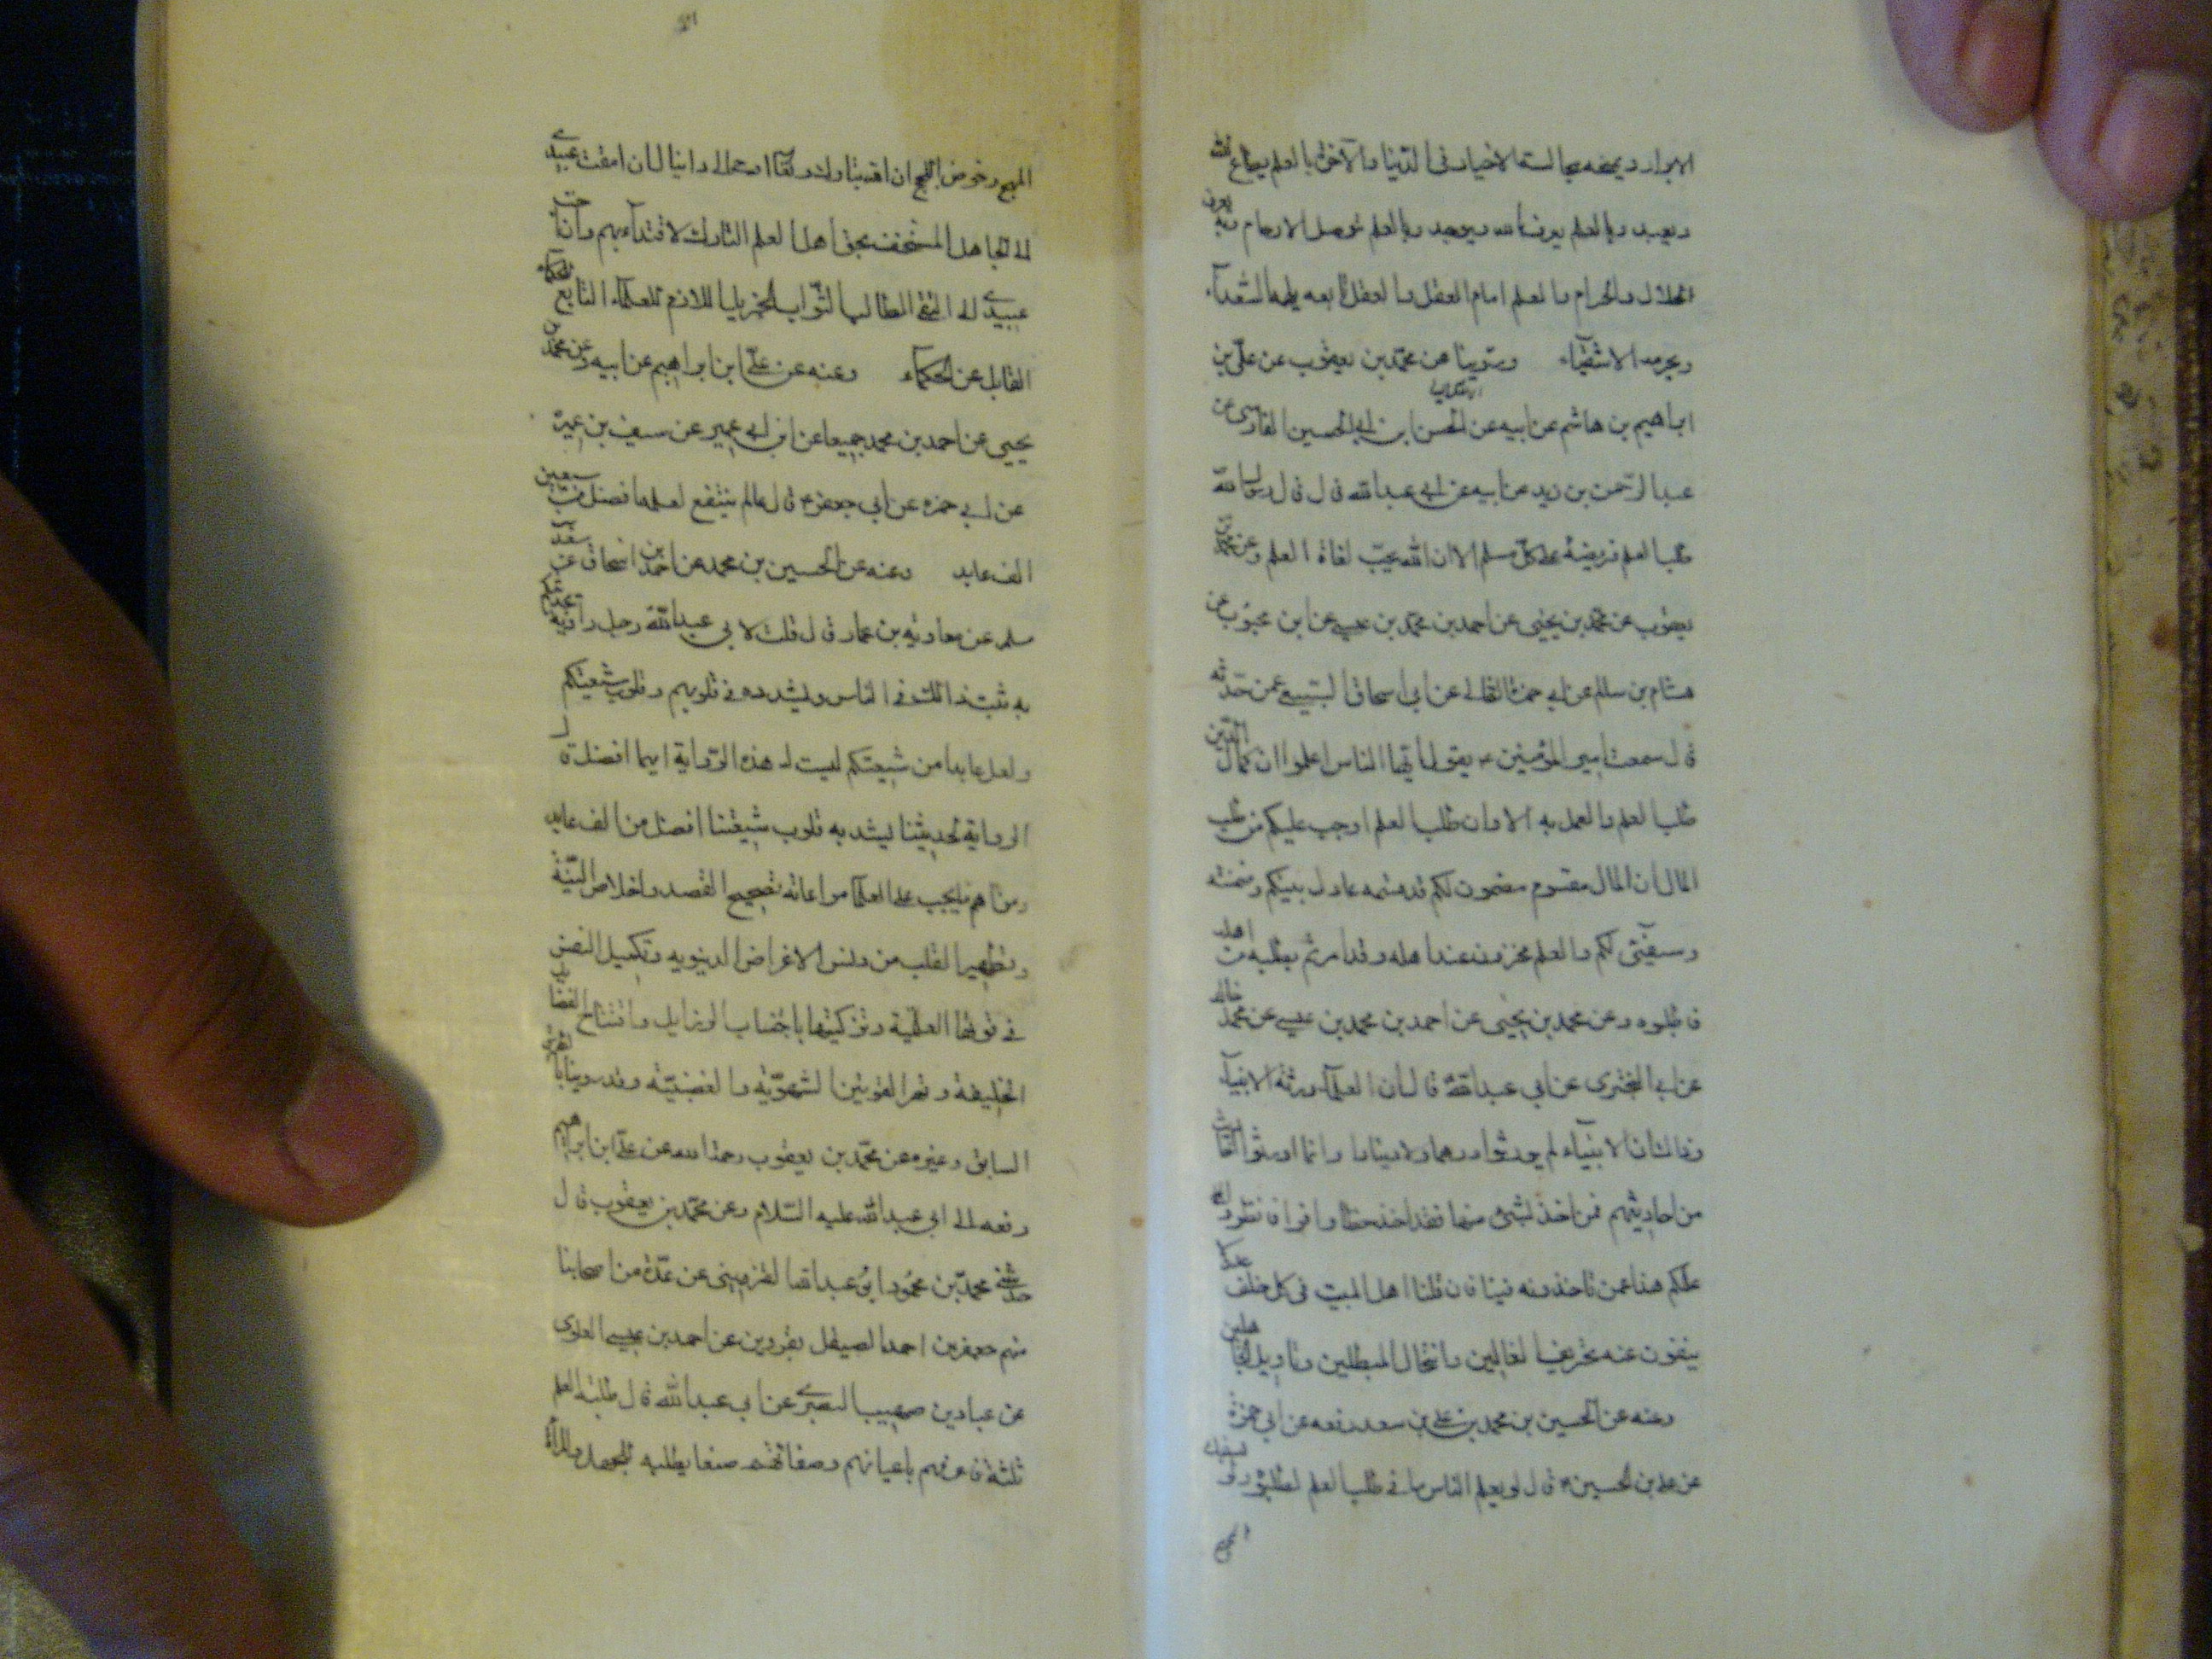 الابرار ويمنحه مجالسة الاخيار فى الدنيا والآخرة بالعلم يطاع الله
ويعبد وبالعلم يعرف الله ويوحد وبالعلم توصل الارحام وبه يعرف
الحلال والحرام والعلم امام العقل والعقل تابعه يلهمه السعدآء
ويحرمه الاشقياء وروينا عن محمد بن يعقوب عن على بن
ابراهيم بن هاشم عن ابيه عن الحسن ابن ابى الحسين الفارسى عن
عبد الرحمن بن زيد عن ابيه عن ابى عبد الله قال قال رسول الله
طلب العلم فريضة على كل مسلم الا ان الله يحب بغاة العلم وعن محمد بن
يعقوب عن محمد بن يحيى عن احمد بن محمد بن عيسى عن ابن محبوب عن
هشام بن سالم عن ابى حمزة الثمالى عن ابى اسحاق السبيعى عمن حدثه
قال سمعت امير المؤمنين ع يقول ايها الناس اعلموا ان كمال الدين
طلب العلم والعمل به الا وان طلب العلم اوجب عليكم من طلب
المال ان المال مقسوم مضمون لكم قد قسمه عادل بينكم وضمنه
وسيفى لكم والعلم مخزون عند اهله وقد امرتم بطلبه من اهله
فاطلبوه وعن محمد بن يحيى عن احمد بن محمد بن عيسى عن محمد خالد
عن ابى البخترى عن ابى عبد الله قال ان العلمآء ورثة الانبيآء
وذلك ان الانبياء لم يورثوا درهما ولا دينارا وانما اورثوا
من احاديثهم فمن اخذ بشئ منها فقد اخذ حظا وافرا فانظروا
علمكم هذا عمن تاخذونه فينا فان فينا اهل البيت فى كل خلف
ينفون عنه تحريف الغالين وانتحال المبطلين وتاويل الجاهلين
وعنه عن الحسين بن محمد بن على بن سعد رفعه عن ابى حمزة
عن على بن الحسين ع قال لو يعلم الناس ما فى طلب العلم لطلبوه ولو بسفك
المهج
المهج وخوض اللجج ان الله تبارك وتعالى اوحى الى دانيال ان امقت عبيدى
الى الجاهل المستخف بحق اهل العلم التارك للاقتدآء بهم وان احب
عبيدى الى التقى الطالب للثواب الجزيل اللازم للعلمآء التابع للحكمآء
القابل عن الحكمآء وعنه عن على ابن ابراهيم عن ابيه وعن محمد بن
يحيى عن احمد بن محمد جميعا عن ابن ابى عمير عن سيف بن عميرة
عن ابى حمزه عن ابى جعفر ع قال عالم ينتفع بعلمه افضل من سبعين
الف عابد وعنه عن الحسين بن محمد عن احمد بن اسحاق عن سعد بن
مسلم عن معاويه بن عمار قال قلت لابى عبد الله رجل راوية لحديثكم
به يثبت ذلك فى الناس ويشدده فى قلوبهم وقلوب شيعتكم
ولعل عابدا من شيعتكم ليست له هذه الرواية ايهما افضل قال
الرواية لحديثنا يشد به قلوب شيعتنا افضل من الف عابد
ومن اهم ما يجب على العلمآء مراعاته تصحيح القصد واخلاص النية
وتطهير القلب من دنس الاغراض الدنيويه وتكميل النفس
فى قوتها العلمية وتزكيتها باجتناب الرذايل
الخليقة وقهر القوتين الشهوية والغضبية وقد روينا بالطريق
السابق وغيره عن محمد بن يعقوب رحمه الله عن على ابن ابراهيم
رفعه الى ابى عبد الله عليه السلام وعن محمد بن يعقوب قال
حدثنى محمد بن محمود ابو عبد الله القزوينى عن عدة من اصحابنا
منهم جعفر بن احمد الصيقل بقزوين عن احمد بن عيسى العلوى
عن عباد بن صهيب البصرى عن ابى عبد الله قال طلبة العلم
ثلثة فاعرفهم باعيانهم وصفاتهم صنف يطلبه للجهل والمراء